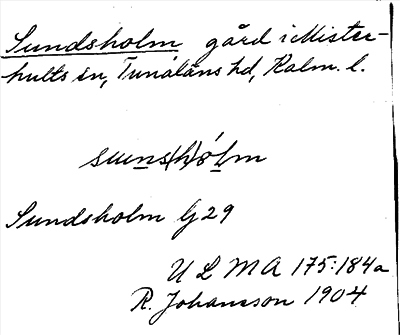 Sundsholm gård i Mister-
hults sn, Tunaläns hd, Kalm. l.
Sundsholm G 29
U L M A 175:184a
R. Johansson 1904